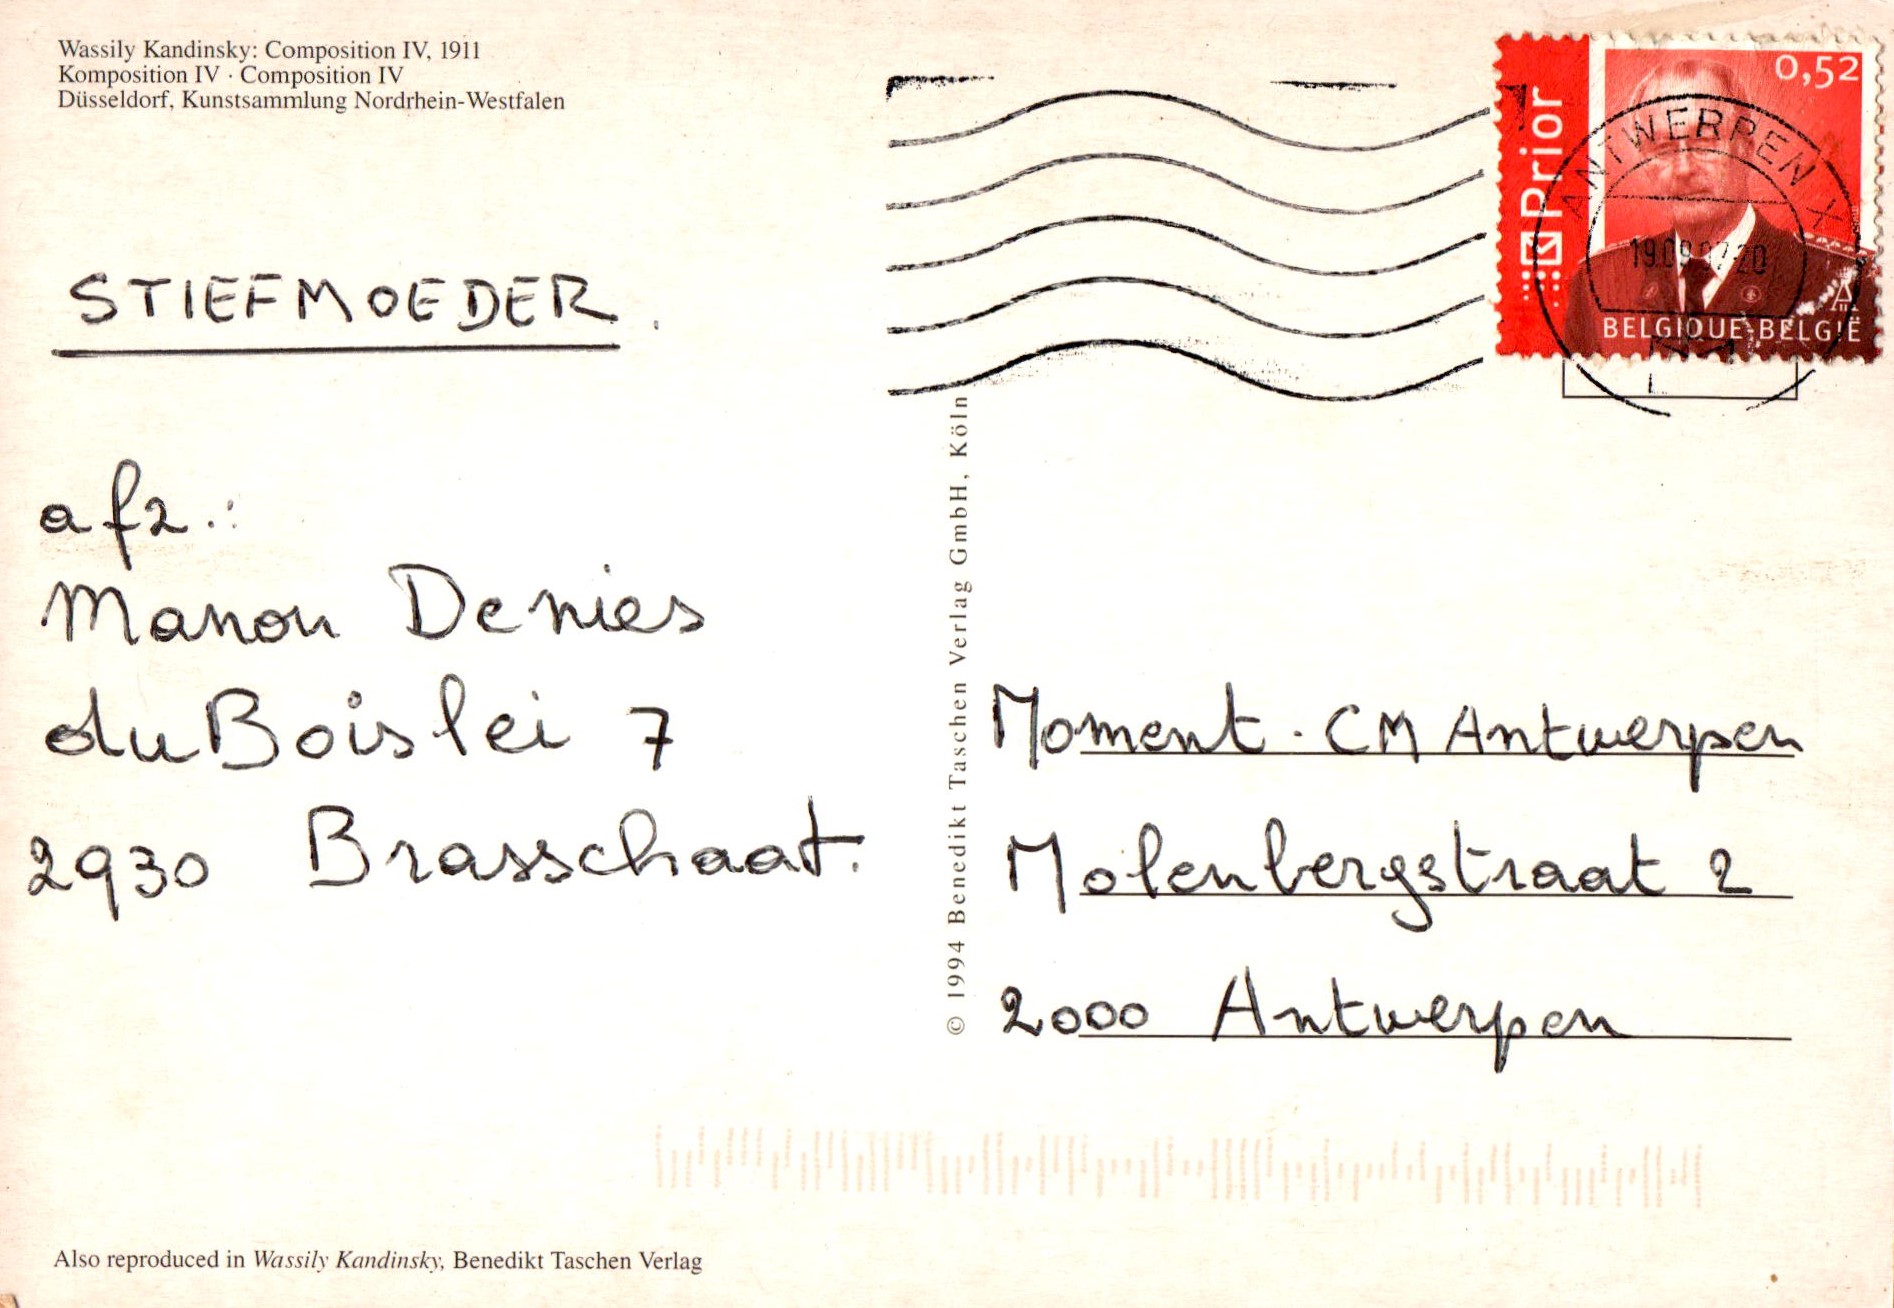 Wassily Kandinsky: Composition IV, 1911
Komposition IV · Composition IV
Düsseldorf, Kunstsammlung Nordrhein-Westfalen
0,52
Prior
ANTWERPEN X
19.09.07-20
BELGIQUE-BELGIË
STIEFMOEDER.
afz.:
Manon Denies
du Boislei 7
2930 Brasschaat.
© 1994 Benedikt Taschen Verlag GmbH, Köln
Moment · CM Antwerpen
Molenbergstraat 2
2000 Antwerpen
Also reproduced in Wassily Kandinsky, Benedikt Taschen Verlag